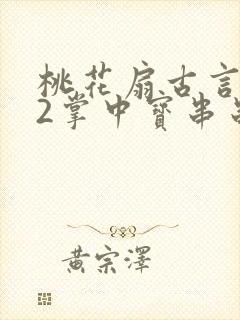 桃花扇古言
2掌中寳串
黄宗澤